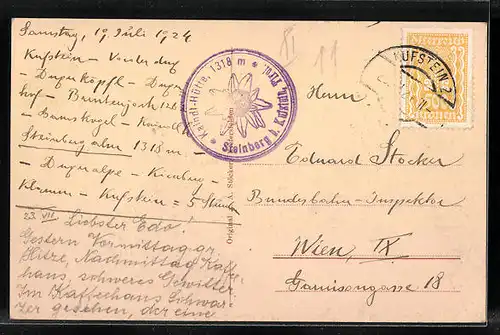 Samstag, 19. Juli 1924
Kufstein - Vorder
Duxerköpfl - Duxer
hof - Brentenjoch 126
- Gamskogel -
Steinberg alm 1318 m -
- Duxeralpe - Kienberg
Klamm - Kufstein = 5 Stund
23. VII. Liebster Edo!
Gestern Vormittag arg.
Hitze, Nachmittag Kaffee-
haus, schweres Gewitter
Im Kaffeehaus Schwar-
zer gesehen, der eine
Kaindl-Hütte, 1318 m
Steinberg b. Kufstein, Tirol
Original A. Stöck
KUFSTEIN 2
Herrn
Eduard Stocker
Bundesbahn-Inspektor
Wien, IX
Garnisongasse 18